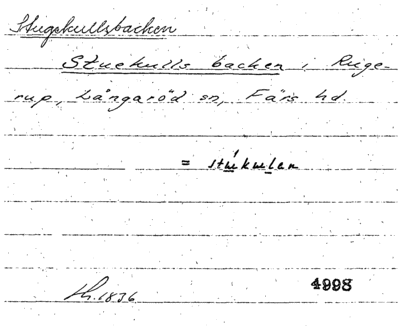 Stugskullsbacken
Stuekulls backen i Ruge-
rup, Långaröd sn, Färs hd.
= stukulen
Lh. 1836
4998